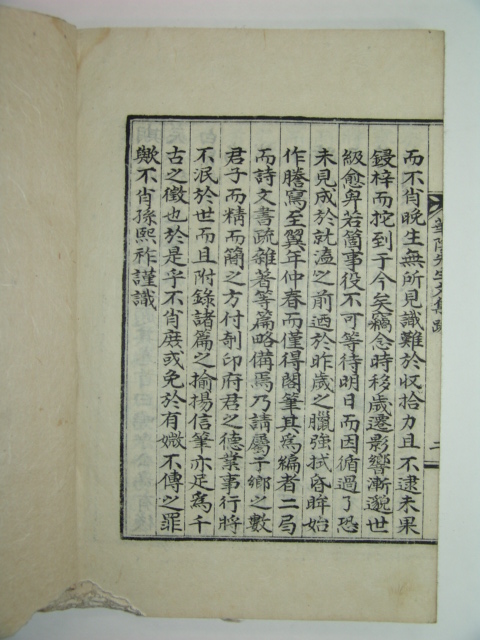 而不肖晚生無所見識難於收拾力且不逮未果
鋟梓而拕到于今矣竊念時移歲遷影響漸邈世
級愈卑若箇事役不可等待明日而因循過了恐
未見成於就溘之前迺於昨歲之臘強拭昏眸始
作謄寫至翼年仲春而僅得閣筆其爲編者二局
而詩文書疏雜著等篇略備焉乃請屬于鄉之數
君子而精而簡之方付剞印府君之德業事行將
不泯於世而且附錄諸篇之揄揚信筆亦足爲千
古之徵也於是乎不肖庶或免於有媺不傳之罪
歟不肖孫熙祚謹識
先生文集跋
二